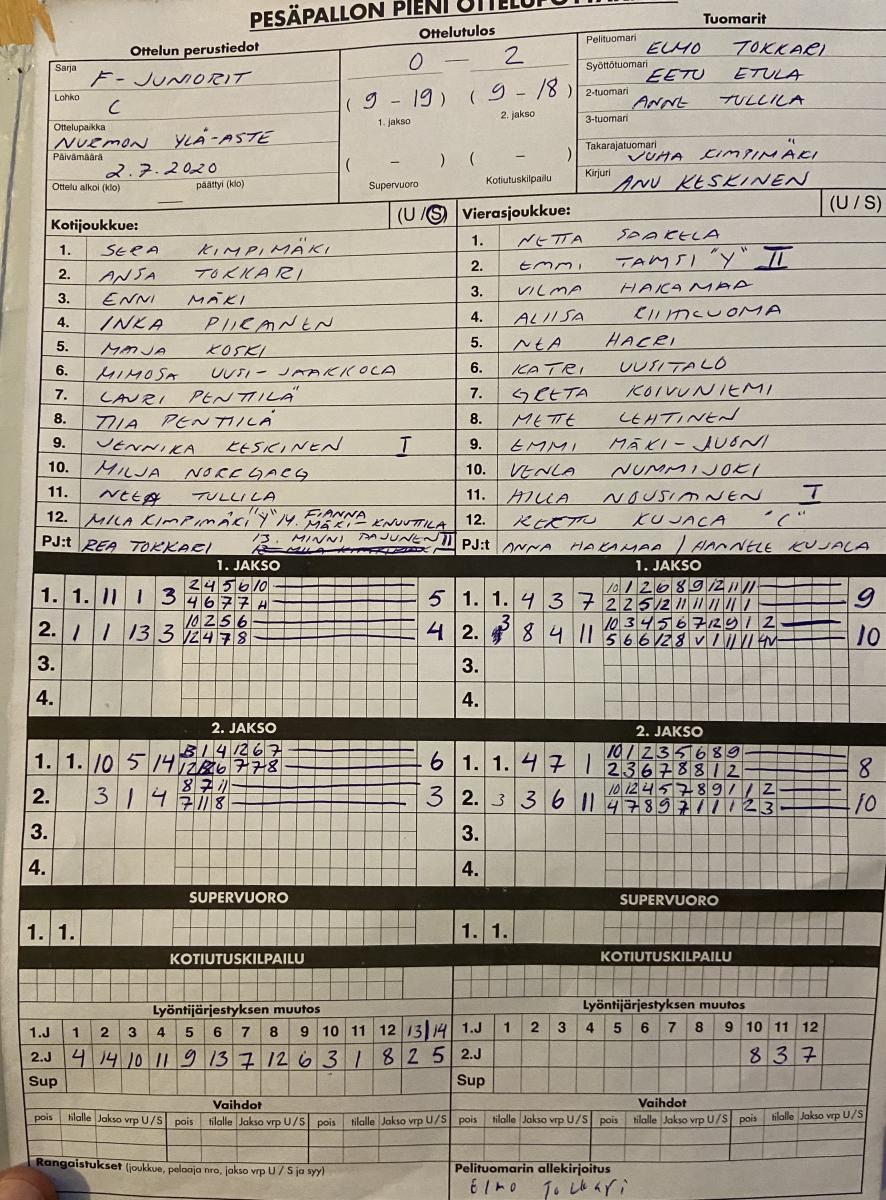 PESÄPALLON PIENI
Ottelun perustiedot
Sarja F-JUNIORIT
Lohko C
Ottelupaikka NURMON YLÄ-ASTE
Päivämäärä 2.7.2020
Ottelu alkoi (klo) päättyi (klo)
Ottelutulos
0 — 2
(9 - 19) (9 - 18)
1. jakso 2. jakso
( - ) ( - )
Supervuoro Kotiutuskilpailu
Tuomarit
Pelituomari ELMO TOKKARI
Syöttötuomari EETU ETULA
2-tuomari ANNE TULLILA
3-tuomari
Takarajatuomari JUHA KIMPIMÄKI
Kirjuri ANU KESKINEN
Kotijoukkue: (U / S)
1. SERA KIMPIMÄKI
2. ANSA TOKKARI
3. ENNI MÄKI
4. INKA PIIRANEN
5. MAIJA KOSKI
6. MIMOSA UUSI-JAAKKOLA
7. LAURI PENTTILÄ
8. TIIA PENTTILÄ
9. JENNIKA KESKINEN I
10. MILJA NORRGARG
11. NEEA TULLILA
12. MILA KIMPIMÄKI "Y" 14. FIANNA MÄKI-KNUUTTILA
PJ:t REA TOKKARI 13. MINNI PAJUNEN II
Vierasjoukkue: (U / S)
1. NETTA SAARELA
2. EMMI TAMSI "Y" II
3. VILMA HAKAMAA
4. ALIISA
5. NEA HARRI
6. KATRI UUSITALO
7. GRETA KOIVUNIEMI
8. METTE LEHTINEN
9. EMMI MÄKI-JUONI
10. VENLA NUMMIJOKI
11. HILLA NOUSIAINEN I
12. KERTTU KUJALA "C"
PJ:t ANNA HAKAMAA / HANNELE KUJALA
1. JAKSO
1. 1. 11 1 3 2 4 5 6 10 5
4 6 7 7 H
2. 1 1 13 3 10 2 5 6 4
12 4 7 8
3.
4.
1. JAKSO
1. 1. 4 3 7 10 1 2 6 8 9 12 11 11 9
2 2 5 12 11 11 11 11 1
2. 3 8 4 11 10 3 4 5 6 7 12 9 1 2 10
5 6 6 12 8 V 1 11 11 4V
3.
4.
2. JAKSO
1. 1. 10 5 14 13 1 4 12 6 7 6
6 7 7 8
2. 3 1 4 8 7 11 3
7 11 8
3.
4.
2. JAKSO
1. 1. 4 7 1 10 1 2 3 5 6 8 9 8
2 3 6 7 8 8 1 2
2. 3 3 6 11 10 12 4 5 7 8 9 1 1 2 10
4 7 8 9 7 1 1 1 2 3
3.
4.
SUPERVUORO
1. 1.
SUPERVUORO
1. 1.
KOTIUTUSKILPAILU
KOTIUTUSKILPAILU
Lyöntijärjestyksen muutos
1.J 1 2 3 4 5 6 7 8 9 10 11 12 13/14
2.J 4 14 10 11 9 13 7 12 6 3 1 8 2 5
Sup
Lyöntijärjestyksen muutos
1.J 1 2 3 4 5 6 7 8 9 10 11 12
2.J 8 3 7
Sup
Vaihdot
pois tilalle Jakso vrp U / S pois tilalle Jakso vrp U / S pois tilalle Jakso vrp U / S
Vaihdot
pois tilalle Jakso vrp U / S pois tilalle Jakso vrp U / S pois tilalle Jakso vrp U / S
Rangaistukset (joukkue, pelaaja nro, jakso vrp U / S ja syy)
Pelituomarin allekirjoitus
Elmo Tokkari